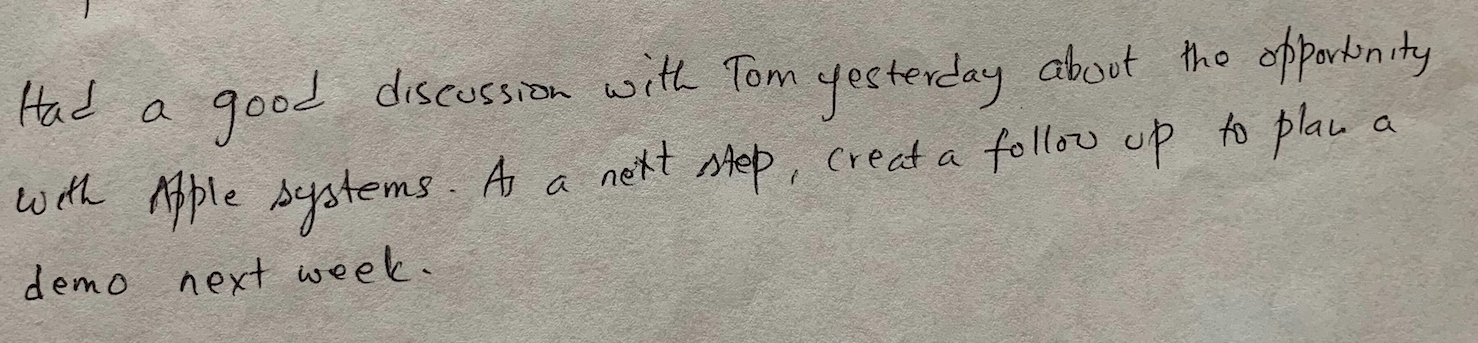 Had a good discussion with Tom yesterday about the opportunity
with Apple systems. As a next step, creat a follow up to plan a
demo next week.